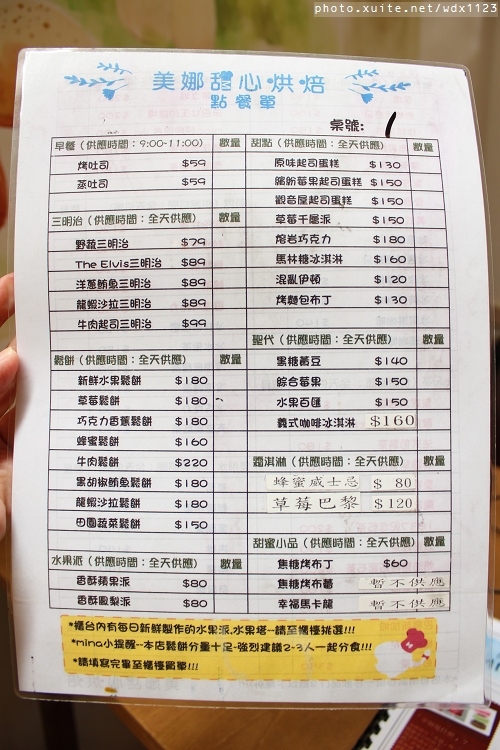 photo.xuite.net/wdx1123
美娜甜心烘焙
點餐單
桌號: 1
早餐(供應時間：9:00~11:00) 數量
烤吐司 $59
蒸吐司 $59
三明治(供應時間：全天供應) 數量
野蔬三明治 $79
The Elvis三明治 $89
洋蔥鮪魚三明治 $89
龍蝦沙拉三明治 $89
牛肉起司三明治 $99
鬆餅(供應時間：全天供應) 數量
新鮮水果鬆餅 $180
草莓鬆餅 $180
巧克力香蕉鬆餅 $180
蜂蜜鬆餅 $160
牛肉鬆餅 $220
黑胡椒鮪魚鬆餅 $180
龍蝦沙拉鬆餅 $180
田園蔬菜鬆餅 $150
水果派(供應時間：全天供應) 數量
香酥蘋果派 $80
香酥鳳梨派 $80
甜點(供應時間：全天供應) 數量
原味起司蛋糕 $130
繽紛莓果起司蛋糕 $150
觀音屋起司蛋糕 $150
草莓千層派 $150
熔岩巧克力 $180
馬林糖冰淇淋 $160
混亂伊頓 $120
烤麵包布丁 $130
聖代(供應時間：全天供應) 數量
黑糖黃豆 $140
綜合莓果 $150
水果百匯 $150
義式咖啡冰淇淋 $160
霜淇淋(供應時間：全天供應) 數量
蜂蜜威士忌 $ 80
草莓巴黎 $120
甜蜜小品(供應時間：全天供應) 數量
焦糖烤布丁 $60
焦糖烤布蕾 暫不供應
幸福馬卡龍 暫不供應
*櫃台內有每日新鮮製作的水果派.水果塔--請至櫃檯挑選!!!
*mina小提醒--本店鬆餅分量十足-強烈建議2-3人一起分食!!!
*請填寫完畢至櫃檯買單!!!